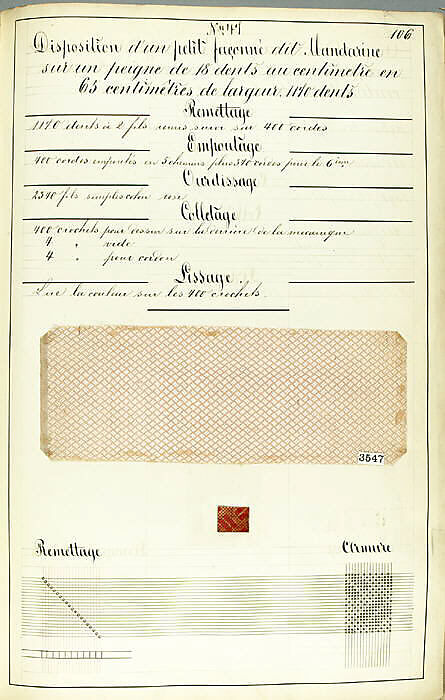 No 47
106
Disposition d'un petit façonné dit Mandarine
sur un peigne de 18 dents au centimètre en
65 centimètres de largeur, 1170 dents
Remettage
1170 dents à 2 fils suivi sur 400 cordes
Empoutage
400 cordes empoutés en 5 chemins plus 340 cordes pour le 6ème
Ourdissage
2340 fils simples
Colletage
400 crochets pour dessin sur la de la mécanique
4 " vide
4 " pour cordon
Lissage
Lire la couleur sur les 400 crochets.
3547
Remettage
Armure